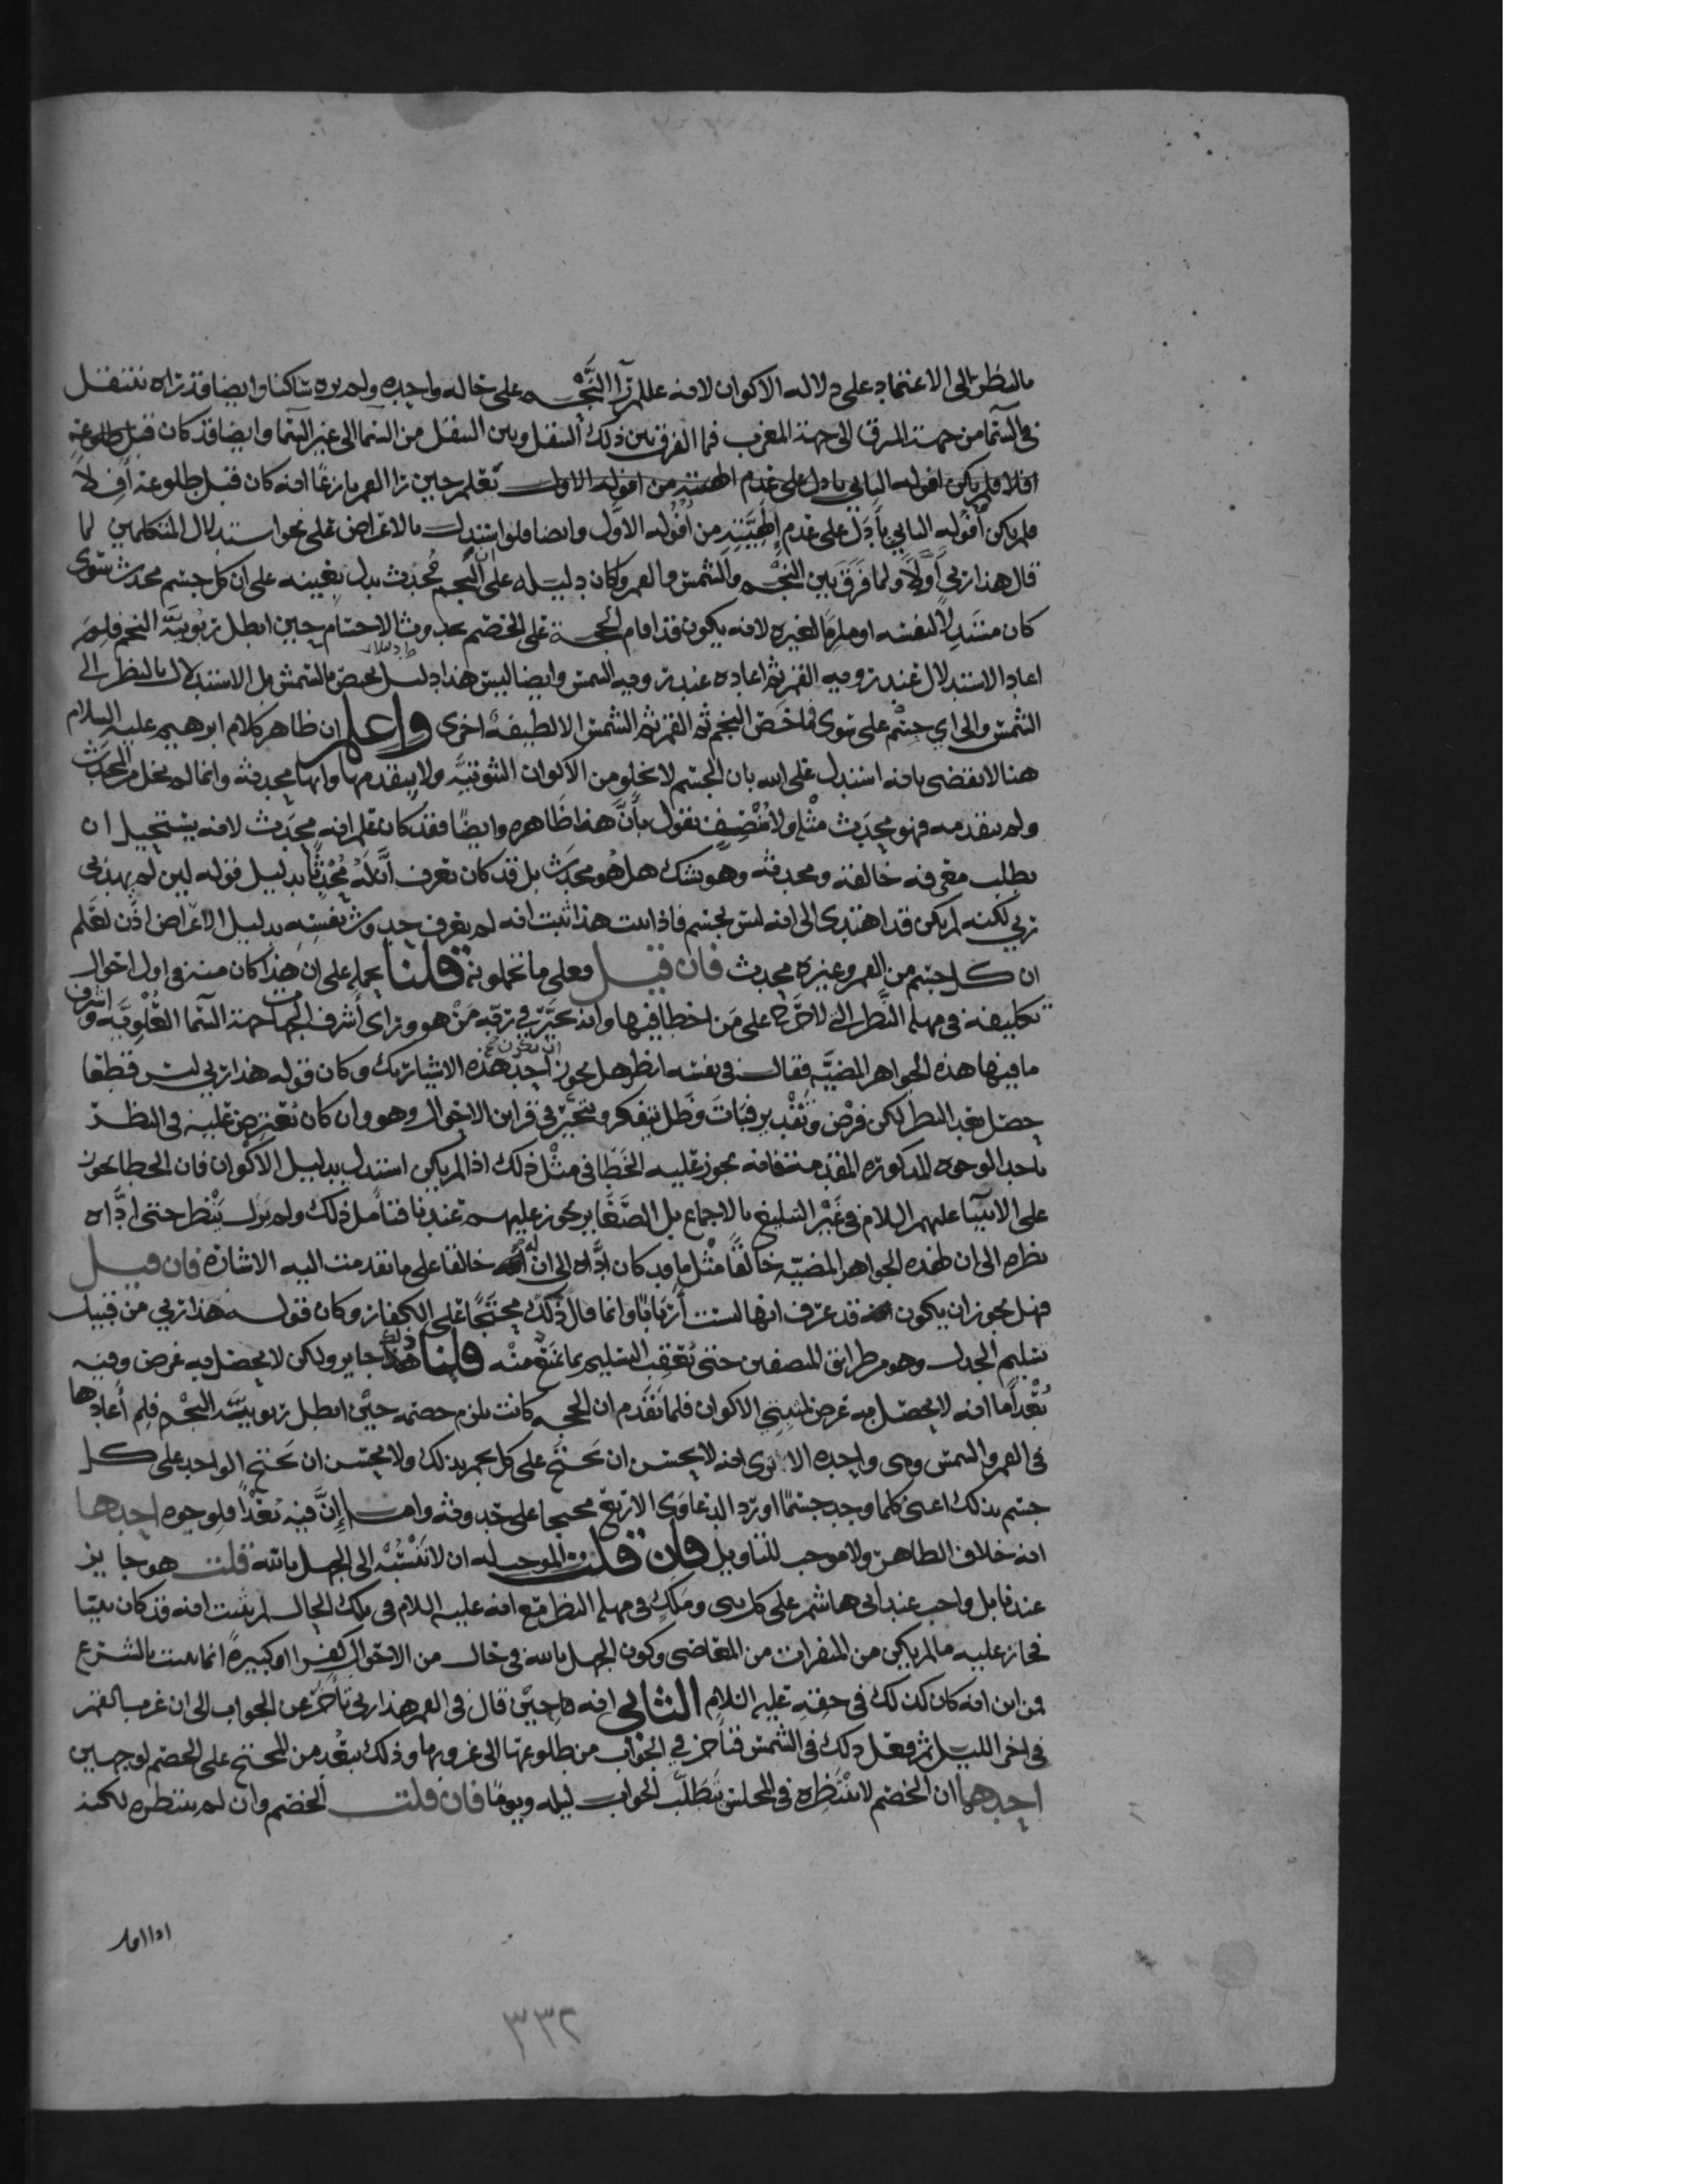 بالنظر الى الاعتماد على دلاله الاكوان لانه علم رآ النَّجْم على حاله واحده ولم يره ساكنا وايضا قد رآه ينتقل
في السما من جهة المشرق الى جهة المغرب فما الفرق بين ذلك النقل وبين النقل من السما الى غير السما وايضا قد كان قبل طلوعه
افلا فلم يكن افوله الثاني بادل على عدم الهيته من افوله الاول يَعلم حين رآ القمر بازغًا انه كان قبل طلوعه آفِلاً
فلم يكن اُفُوله الثاني بأَدَلَّ على عدم إلهيَّتِهِ من اُفُوله الاوَّل وايضا فلو استدل بالاعراض على نحو استدلال المتكلمين لما
قال هذا ربي أَوَّلاً ولما فَرَقَ بَين النَّجْم والشمس والقمر وكان دليله على ان النَّجم مُحدَث يدل بعينه على ان كل جسم محدث سَوى
كان مستدِلاً لنفسه او ملزِمًا لغيره لانه يكون قد اقام الحجة على الخصم بحدوث الاجسام حين ابطل ربُوبيَّة النجم فلِمَ
اعاد الاستدلال عند رويه القمر ثم اعاده عند رويه الشمس وايضا ليس هذا دليل يخص بالشمس بل الاستدلال بالنظر الى
الشمس والى اي جسْم على سَوى فما خصّ النجم ثم القمر ثم الشمس الا لطيفةٌ اخرى واعلم ان ظاهر كلام ابرهيم عليه السلام
هنا لا يقضى بانه استدل على الله بان الجسم لا يخلو من الاكوان الثبوتيَّه ولا يتقدمها وانها محدثة وانما لم يخل من المحدَث
ولم يتقدمه فهو محدَث مثله ولا مُنْصِف يقول بأنَّ هذا ظاهره وايضًا فقد كان علم انه محدَث لانه يستحيل ان
يطلب معرفه خالقه ومحدثه وهو يشك هل هُو محدَث بل قد كان يعرف انَّ لَهُ مُحْدِثًا بدليل قوله لين لم يهدني
ربي لكنه لم يكن قد اهتدى الى انه ليس بجسم فاذا ثبت هذا ثبت انه لم يعرف حدوث نفسِهِ بدليل الاعراض اذن لعَلم
ان كل جسم من القمر وغيره محدث فان قيل فعلى ما تحملونه قلنا نحمله على ان هذا كان منه في اول احوال
تكليفه في مهلة النَّظر التي لا حَرَج على مَن اخطا فيها وانه تحيَّر في ربّه مَنْ هو وراى أشرف الجهات جهة السَّما العُلْويَّه واشرف
ما فيها هذه الجواهر المضيَّه فقال في نفسه انظر هل يجوز ان يكون احد هذه الاشيا ربك وكان قوله هذا ربي ليس قطعا
حصل بعد النظر لكن فَرْض وتَقْدير فباتَ وظل يتفكر ويتحيَّر في قراين الاحوال وهو وان كان يعترض عليه في النظر
باحد الوجوه المذكوره المقدمة فانه يجوز عليه الخَطا في مثل ذلك اذا لم يكن استدل بدليل الاكْوان فان الخطا يجوز
على الانبيآ عليهم السلام في غَيْر التبليغ بالاجماع بل الصَّغاير يجوز عليهم عندنا فتامل ذلك ولم يَزل يَنْظر حتى ادَّاه
نظره الى ان لهذه الجواهر المضيّه خالقًا مثْل ما قد كان ادَّاه الى ان له خالقا على ما تقدمت اليه الاشارة فان قيل
فهل يجوز ان يكون قد عرف انها ليست أرْبَابًا وانما قال ذلك محتجًّا على الكفار وكان قوله هذا ربي من قبيل
تسليم الجدل وهو من طرايق المنصفين حتى يُعقِب التسليم بما يَمْنَع منْه قلنا ذلك جايز ولكن لا يحصل به غرض وفيه
بُعْد أما انه لا يحصل به غرض لمثبتي الاكوان فلما تقدَّم ان الحجه كانت تلزم خصمه حيْن ابطل ربوبيَّة النجْم فلِمَ أعادها
في القمر والشمس وهى واحده الا ترى انه لا يحسن ان نحتجَّ على كل بجم بذلك ولا يحسن ان نحتج الواحد على كل
جسم بذلك اعنى كلما وجد جسْمًا اورد الدعاوَى الاربع محتجا على حدوثه واما إنَّ فيْه بُعْدًا فلوجوه احدها
انه خلاف الظاهر ولا موجب للتاويل فان قلت الموجب له ان لا نَنْسُبَهُ الى الجهل بالله قلت هو جايز
عندنا بل واجب عند ابي هاشم على كل نبي ومَلَكٍ في مهلة النظر مَع انه عليه السلام في تلك الحال لم يثبت انه قد كان نبيّا
فجاز عليه ما لم يكن من المنفرات من المعاصى وكون الجهل بالله في حال من الاحوال كفرا او كبيرةً انما يثبت بالشرع
فمن اين انه كان كذلك في حقِه عليه السلام الثاني انه حيْن قال في القمر هذا ربي تأخَّر عن الجواب الى ان غرب القمر
في اخر الليل ثم فعل ذلك في الشمس فتأخر في الجواب من طلوعها الى غروبها وذلك يبْعُد من المحتج على الخصم لوجهين
احدهما ان الخصم لا ينْتَظِره في المجلس بتَطَلُّب الجواب ليله ويومًا فان قلت الخصم وان لم ينتظره لكنه
٣٣٢